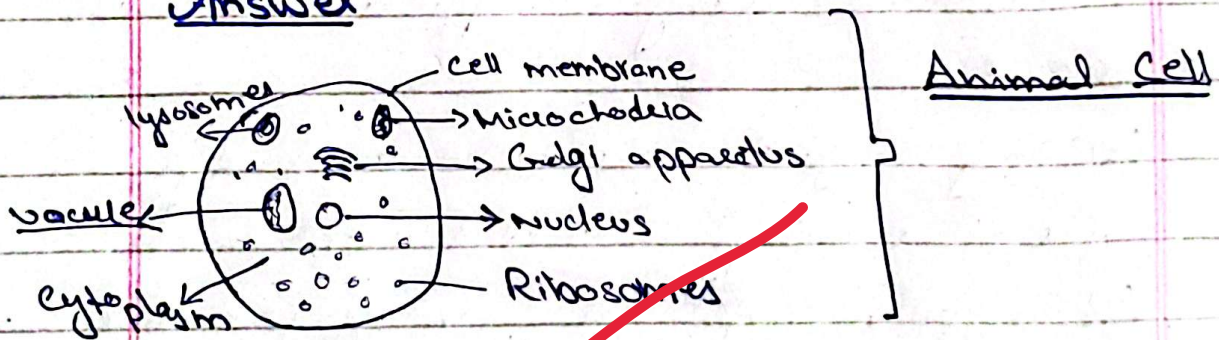 Answer
cell membrane
Animal Cell
lysosomes
Microchodria
Golgi apparatus
vacule
Nucleus
Cytoplasm
Ribosomes